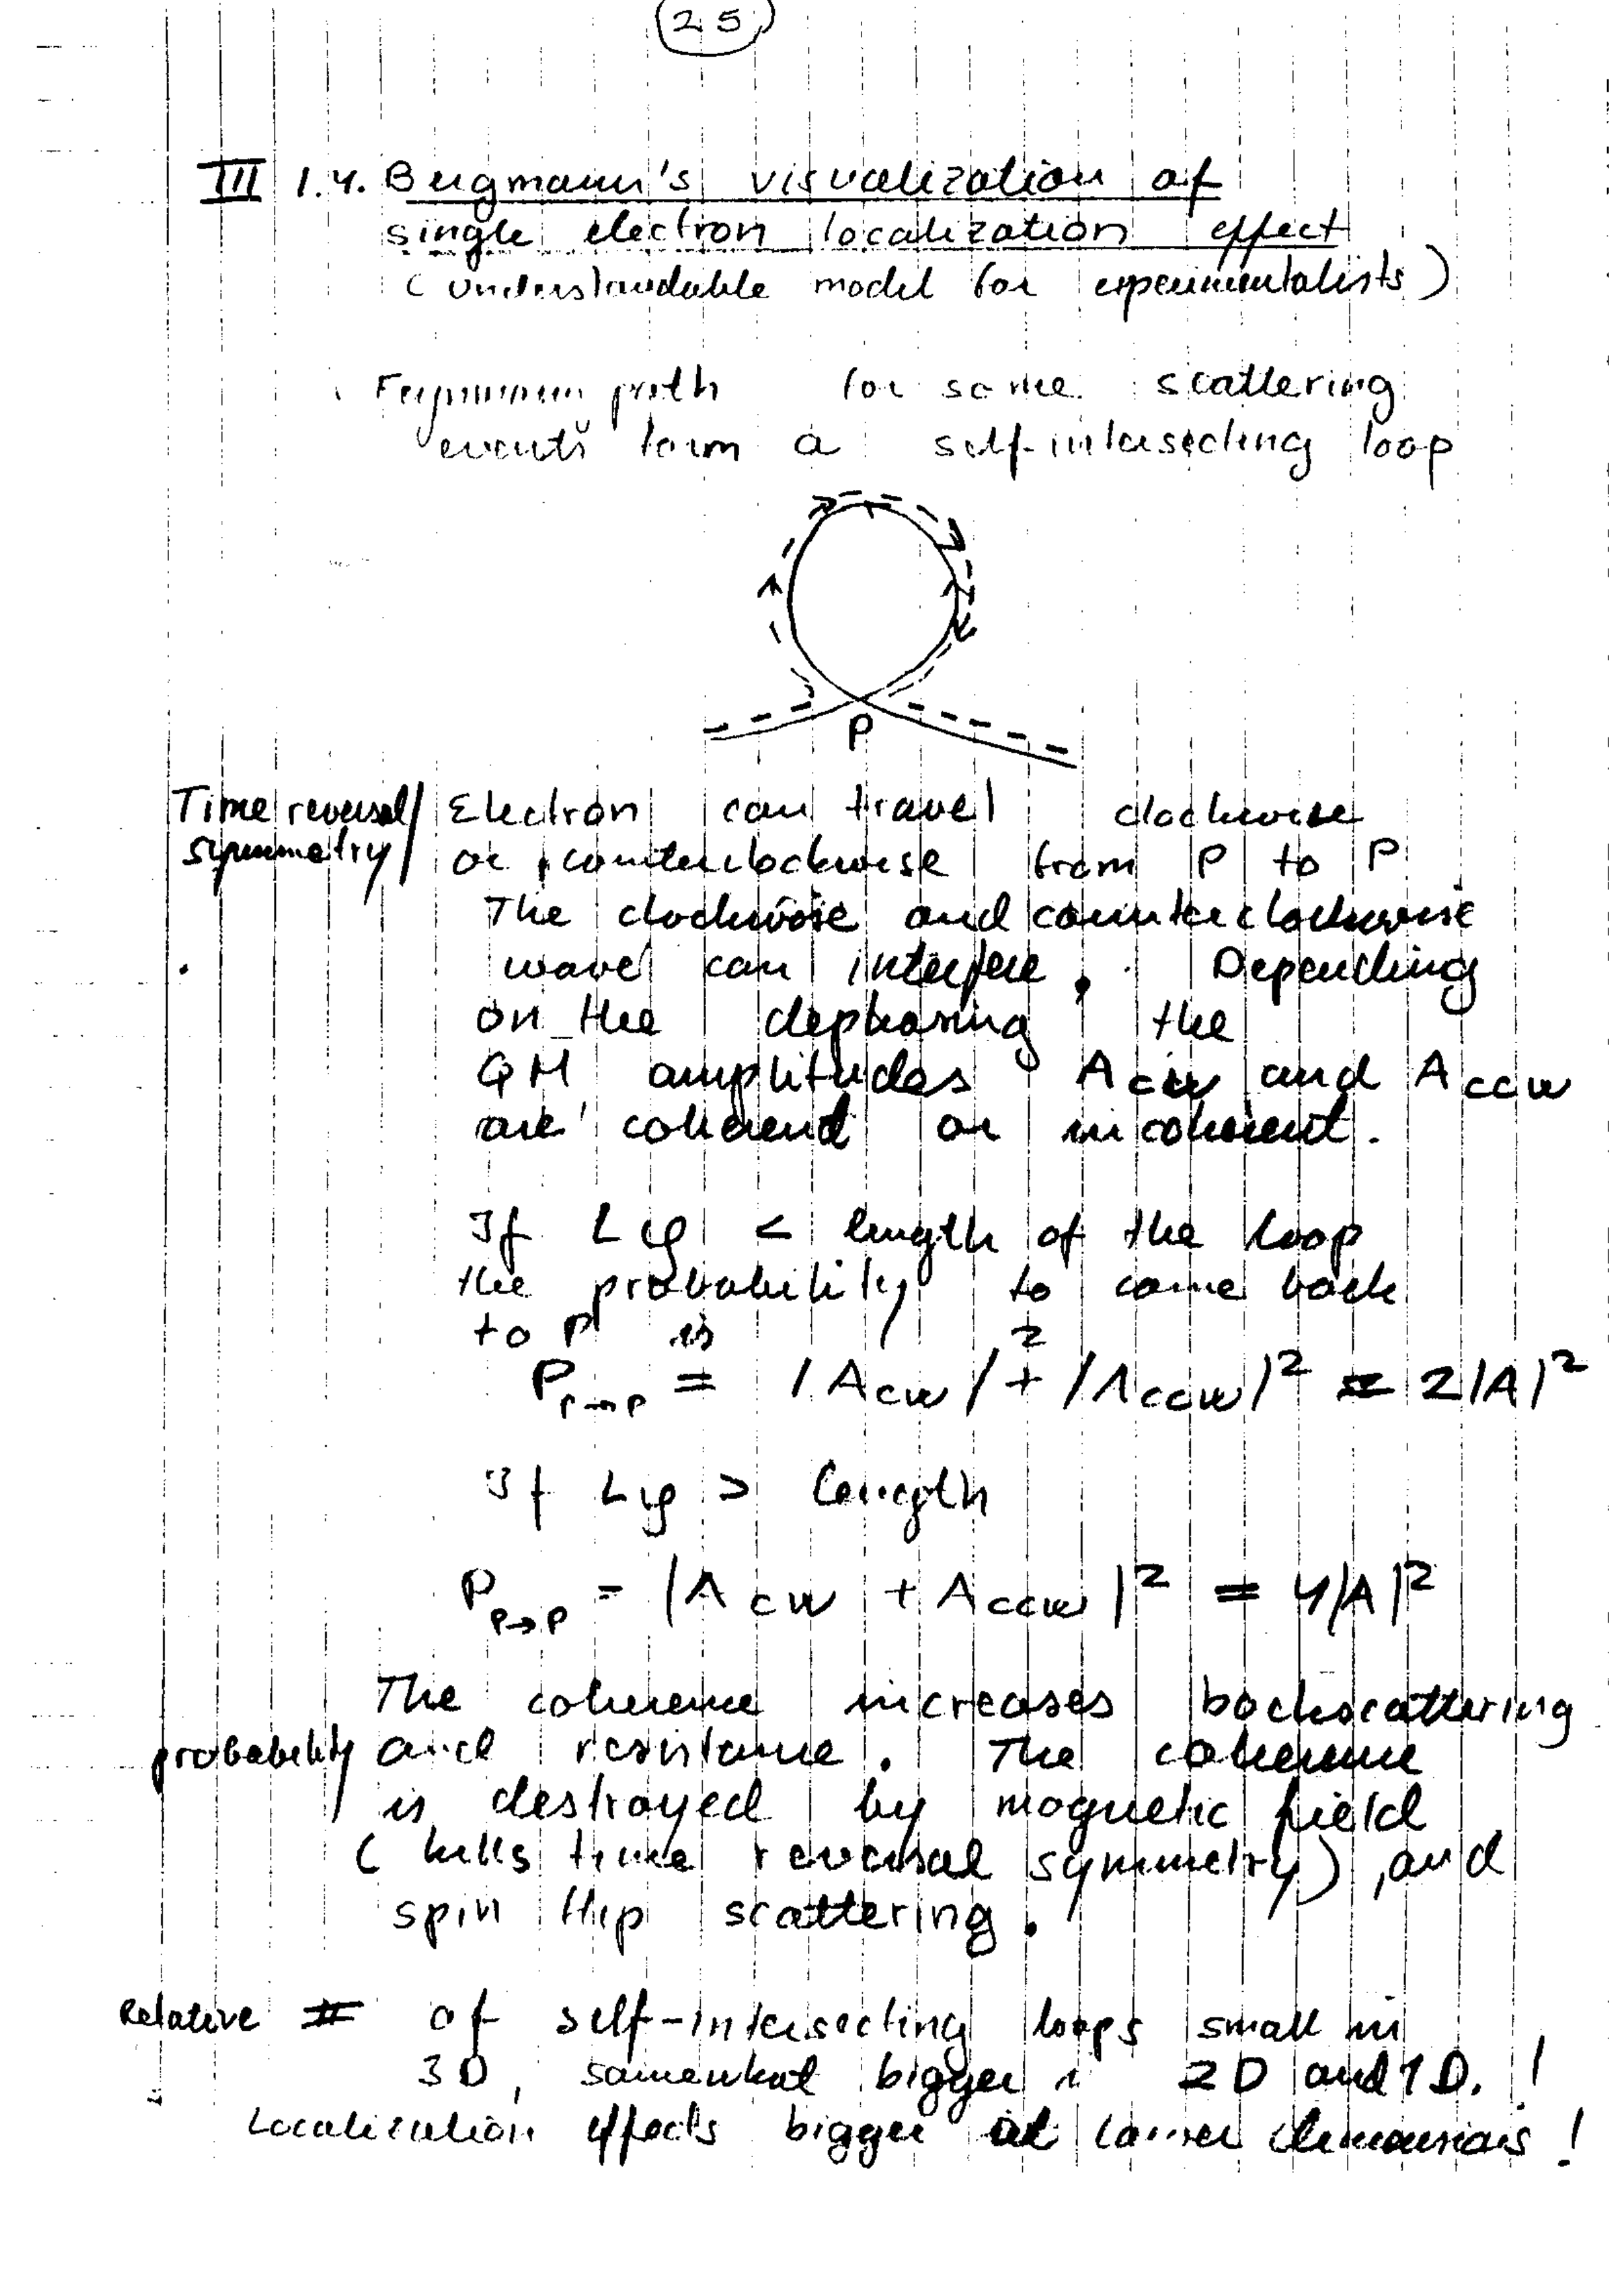 25
III 1.4. Bergmann's visualization of
single electron localization effect
(understandable model for experimentalists)
Feynman path for some scattering
events form a self-intersecting loop
P
Time reversal / Electron can travel clockwise
symmetry / or counterclockwise from P to P
The clockwise and counterclockwise
wave can interfere. Depending
on the dephasing the
QM amplitudes A cw and A ccw
are coherent or incoherent.
If Lφ < length of the loop
the probability to come back
to P is
P P→P = |A cw|² + |A ccw|² = 2|A|²
If Lφ > length
P P→P = |A cw + A ccw|² = 4|A|²
The coherence increases backscattering
probability and resistance. The coherence
is destroyed by magnetic field
(kills time reversal symmetry), and
spin flip scattering.
Relative # of self-intersecting loops small in
3D, somewhat bigger in 2D and 1D. !
Localization effects bigger at lower dimensions !